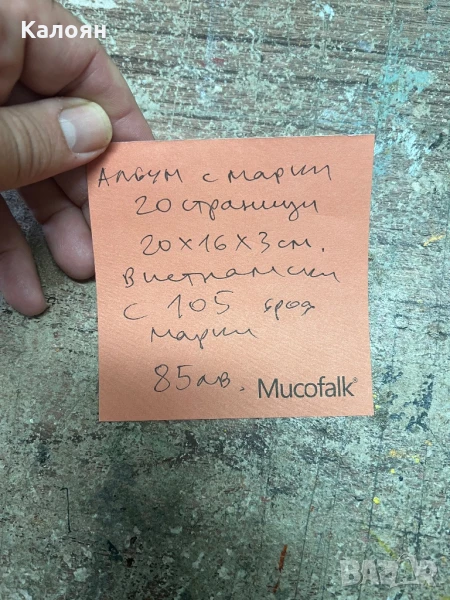 Калоян
Албум с марки
20 страници
20х16х3см.
Виетнамски
с 105 броя
марки
85лв.
Mucofalk®
BAZAR